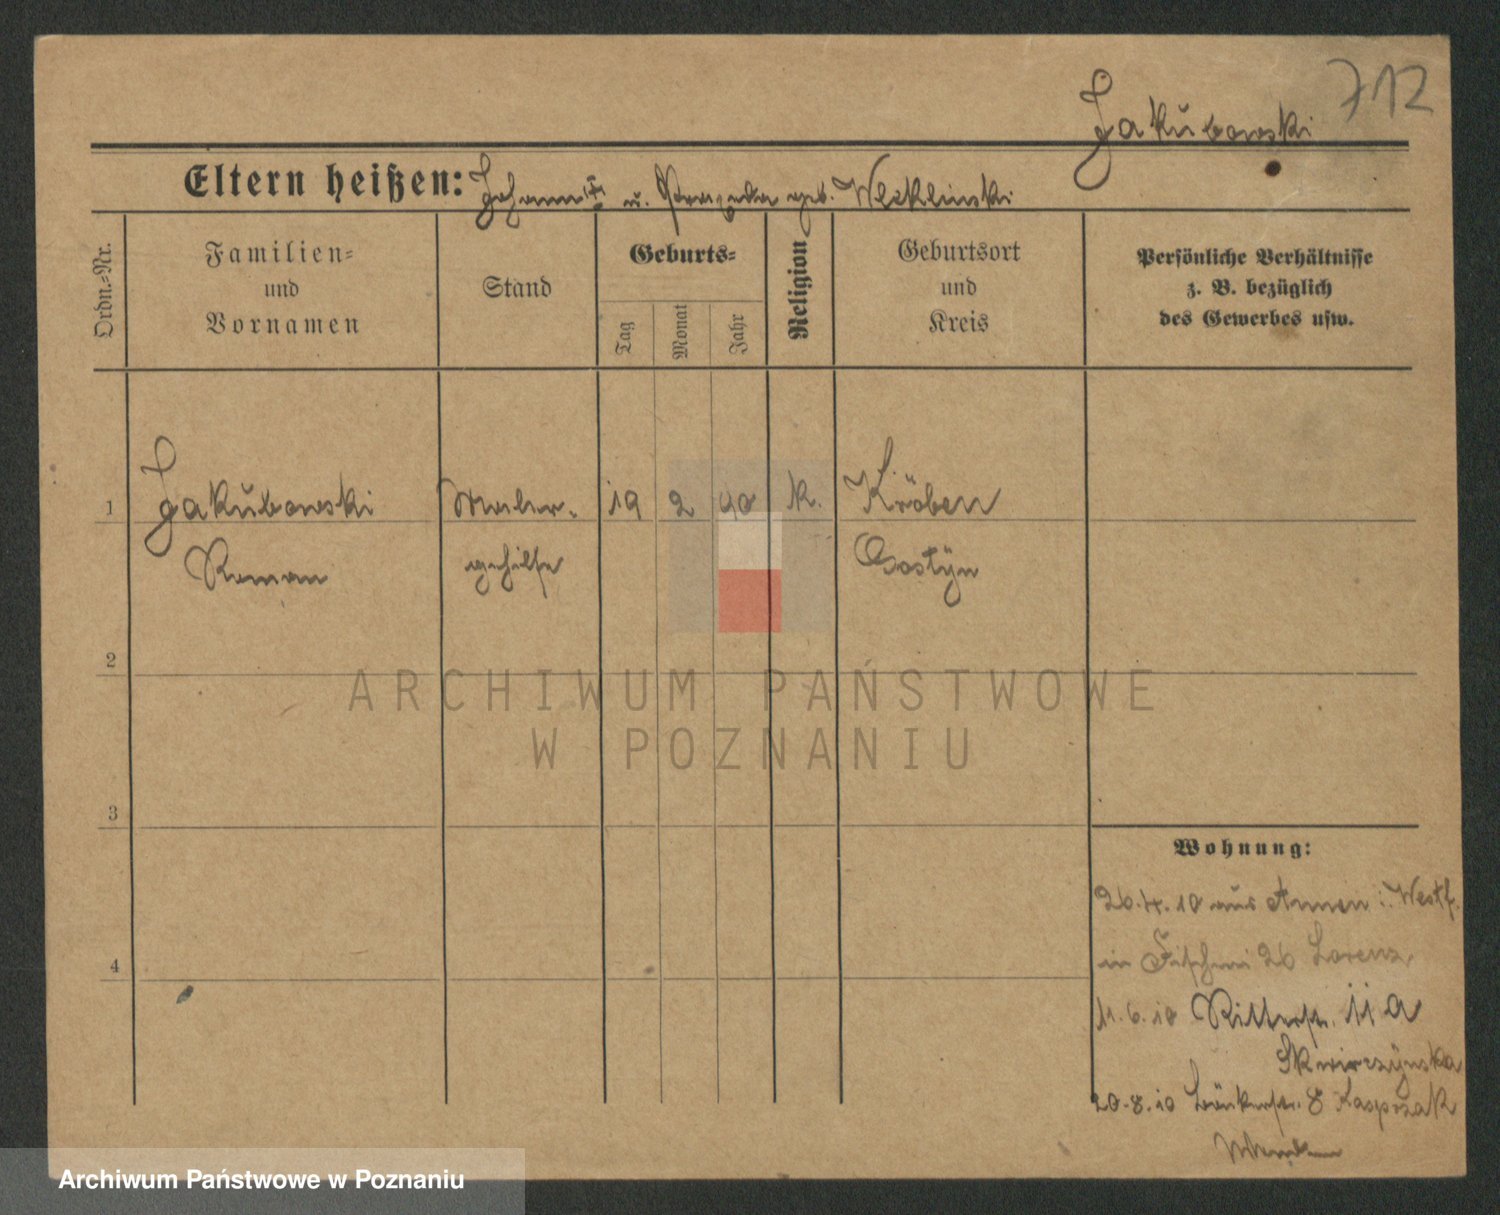 712
Jakubowski
Eltern heißen: Johann u. geb.
Ordn.-Nr.
Familien- und Vornamen
Stand
Geburts-
Tag
Monat
Jahr
Religion
Geburtsort und Kreis
Persönliche Verhältnisse z. B. bezüglich des Gewerbes usw.
1 Jakubowski Maler- 19 2 90 k. Kröben
Roman gehilfe Gostÿn
2
3
4
Wohnung:
26.4.10 aus Annen i. Westf.
in 26 Lorenz,
11.6.10 Ritterstr. 11 a
Skwirczÿnska
20.8.10 8 Kasprzak
ARCHIWUM PAŃSTWOWE
W POZNANIU
Archiwum Państwowe w Poznaniu